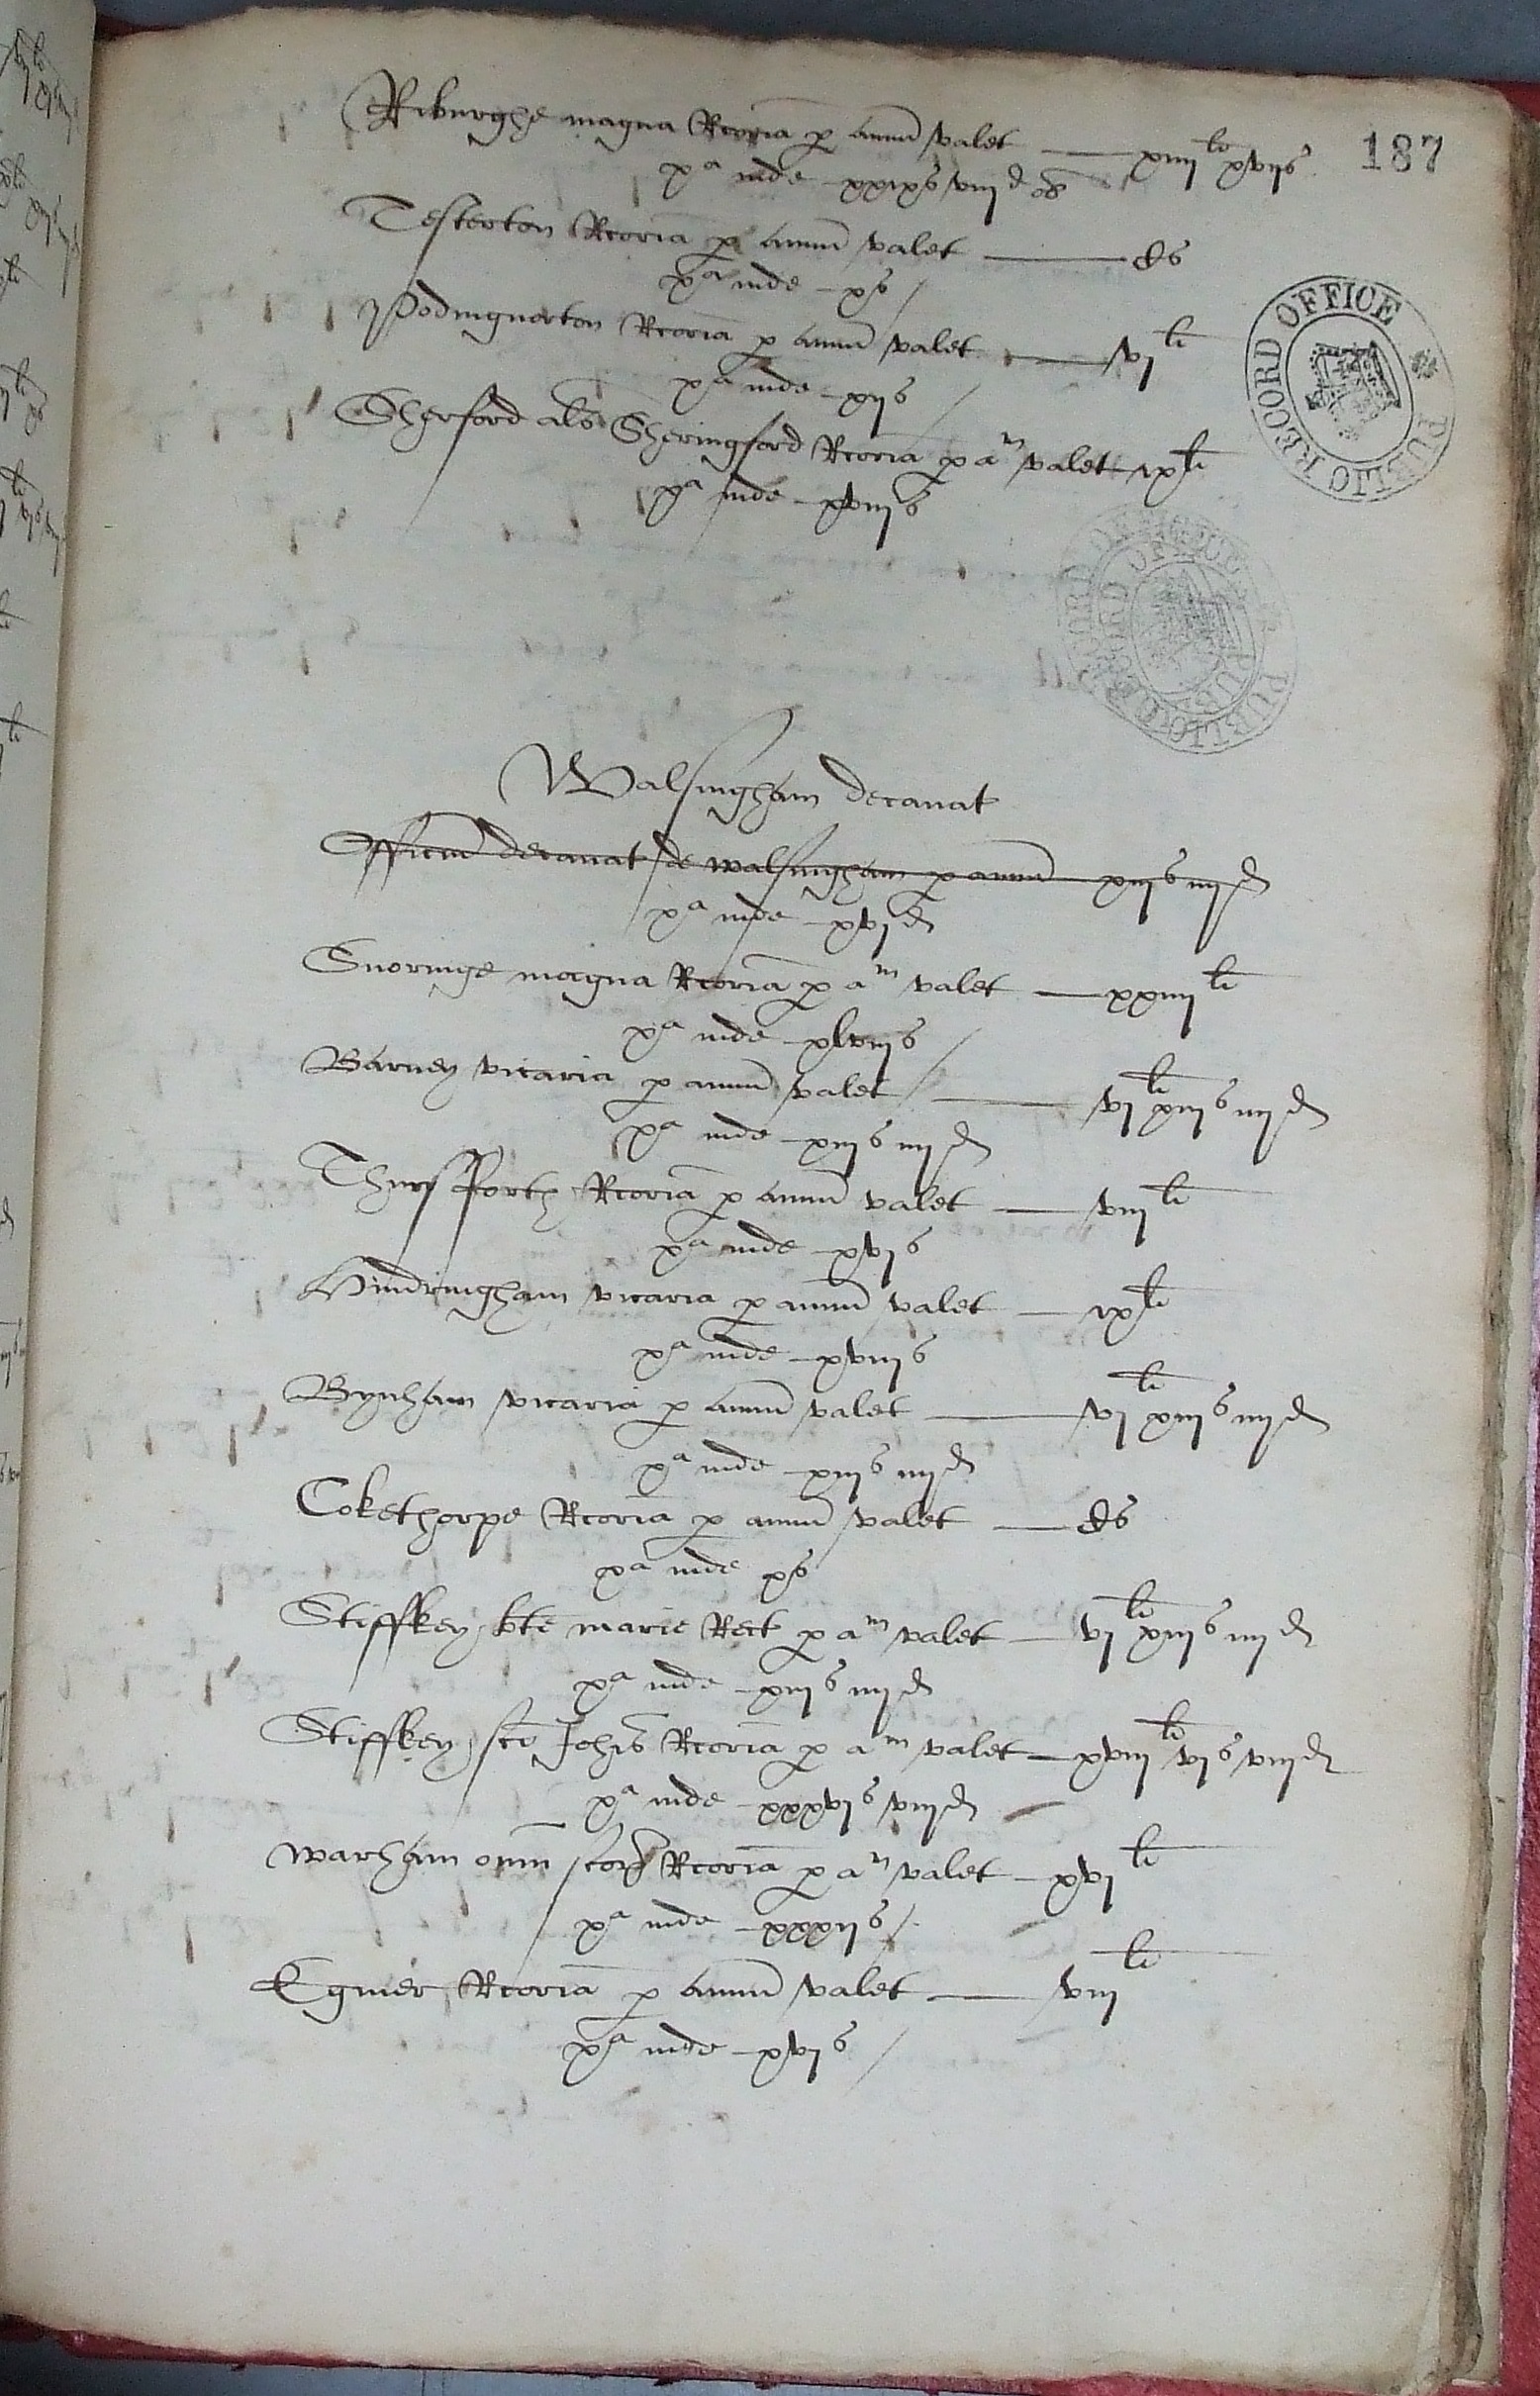 187
Riburghe magna Rcoria p annu valet — xiiij li xvijs
xa inde – xxixs viij d ob
Testerton Rcoria p annu valet — Cs
xa inde – xs
Podingnorton Rcoria p annu valet — vj li
xa inde – xijs
Sherford als Sheringford Rcoria p am valet ix li
xa inde – xviijs
PUBLIC RECORD OFFICE
Walsingham decanat
Officiu decanat de walsingham p annu xiijs iiijd
xa inde – xvjd
Snoringe magna Rcoria p am valet — xxiiij li
xa inde – xlviijs
Barney vicaria p annu valet — vj li xiijs iiijd
xa inde – xiijs iiijd
Thursfforth Rcoria p annu valet — viij li
xa inde – xvjs
Hindringham vicaria p annu valet — ix li
xa inde – xviijs
Bynham vicaria p annu valet — vj li xiijs iiijd
xa inde – xiijs iiijd
Cokethorpe Rcoria p annu valet — Cs
xa inde xs
Stiffkey bte marie Rect p am valet — vj li xiijs iiijd
xa inde – xiijs iiijd
Stiffkey sci Johis Rcoria p am valet – xviij li vjs viijd
xa inde – xxxvjs viijd
warham oim scor Rcoria p am valet – xvj li
xa inde – xxxijs
Egmer Rcoria p annu valet — viij li
xa inde – xvjs